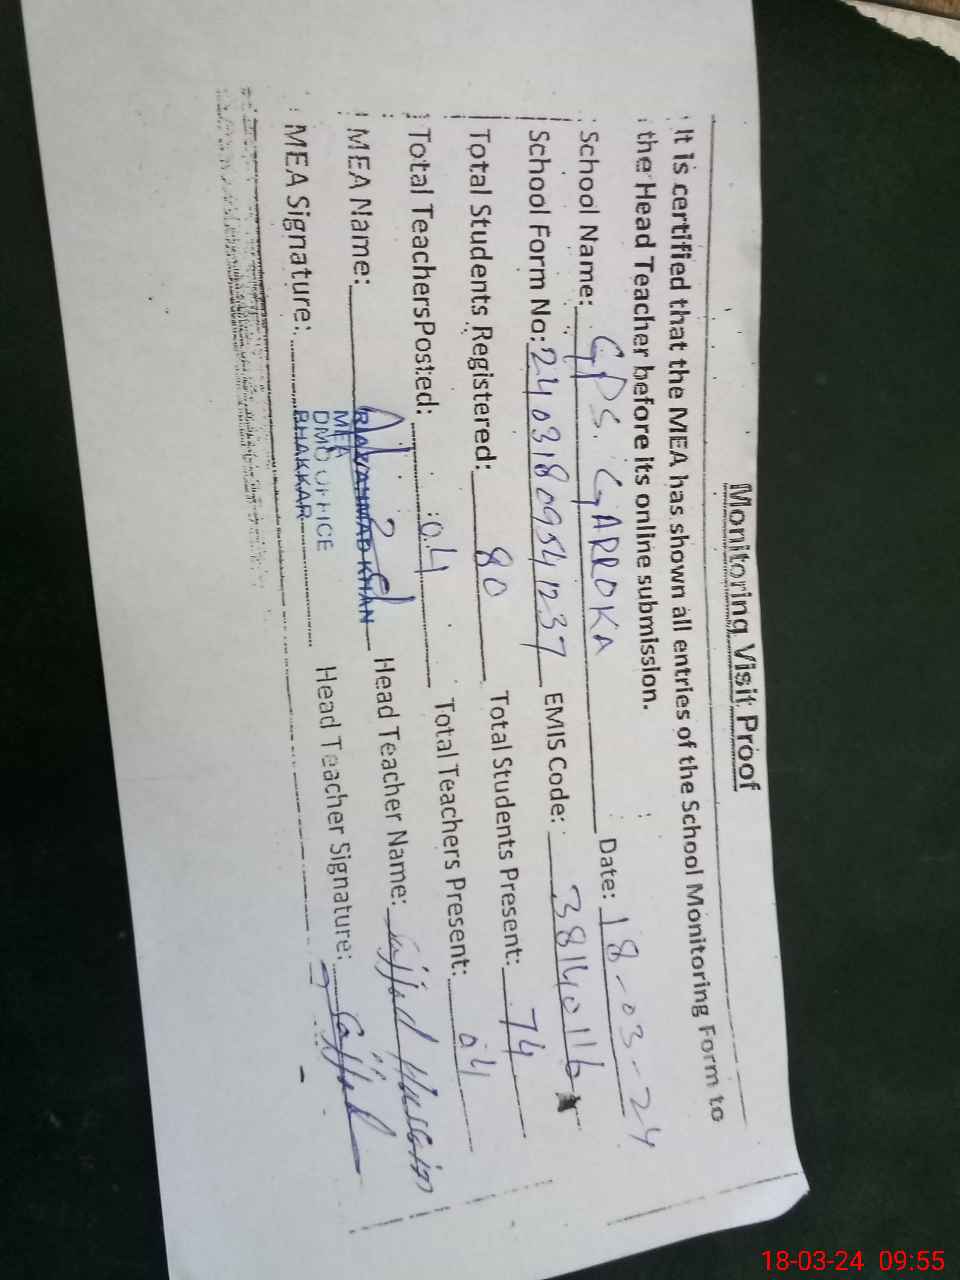 Monitoring Visit Proof
It is certified that the MEA has shown all entries of the School Monitoring Form to
the Head Teacher before its online submission.
School Name: GPS. GARROKA Date: 18-03-24
School Form No: 24031809541237 EMIS Code: 38140116
Total Students Registered: 80 Total Students Present: 74
Total TeachersPosted: 04 Total Teachers Present: 04
MEA Name: RIAZ AHMAD KHAN Head Teacher Name: Sajjad Hussain
MEA
MEA Signature: Head Teacher Signature: Sajjad
DMO OFFICE
BHAKKAR
18-03-24 09:55